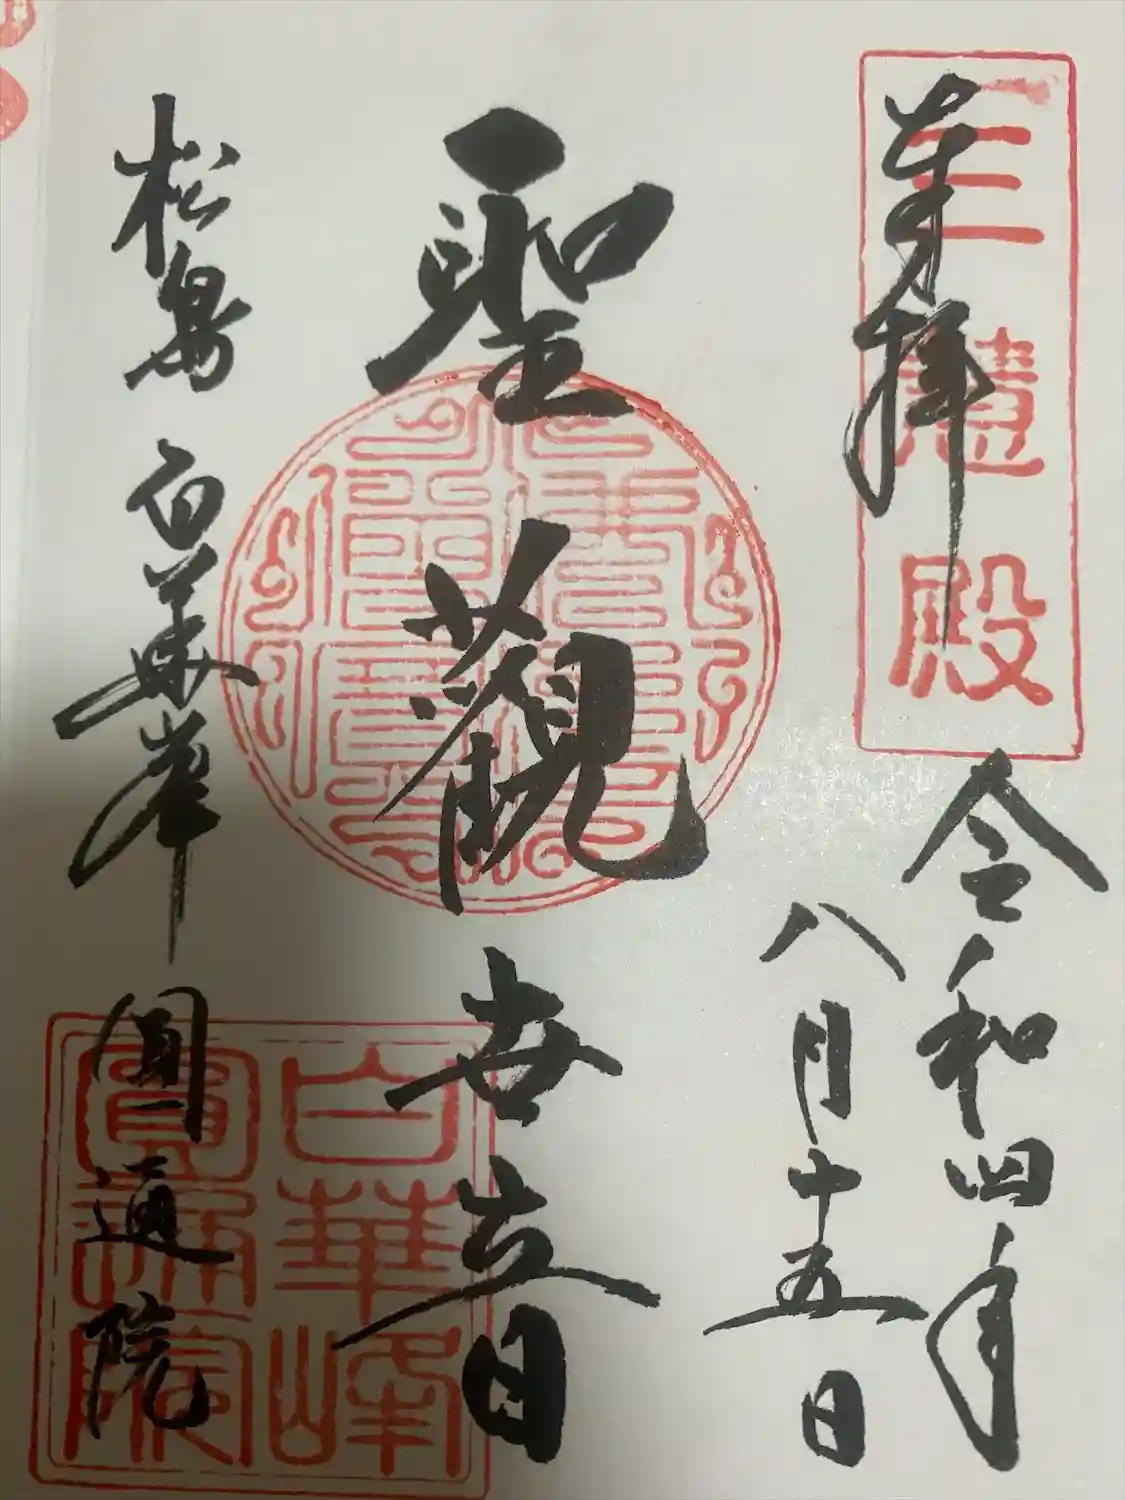 奉拝
三慧殿
令和四年
八月十五日
聖觀世音
松島 白華峯 圓通院
白華峰
圓通院